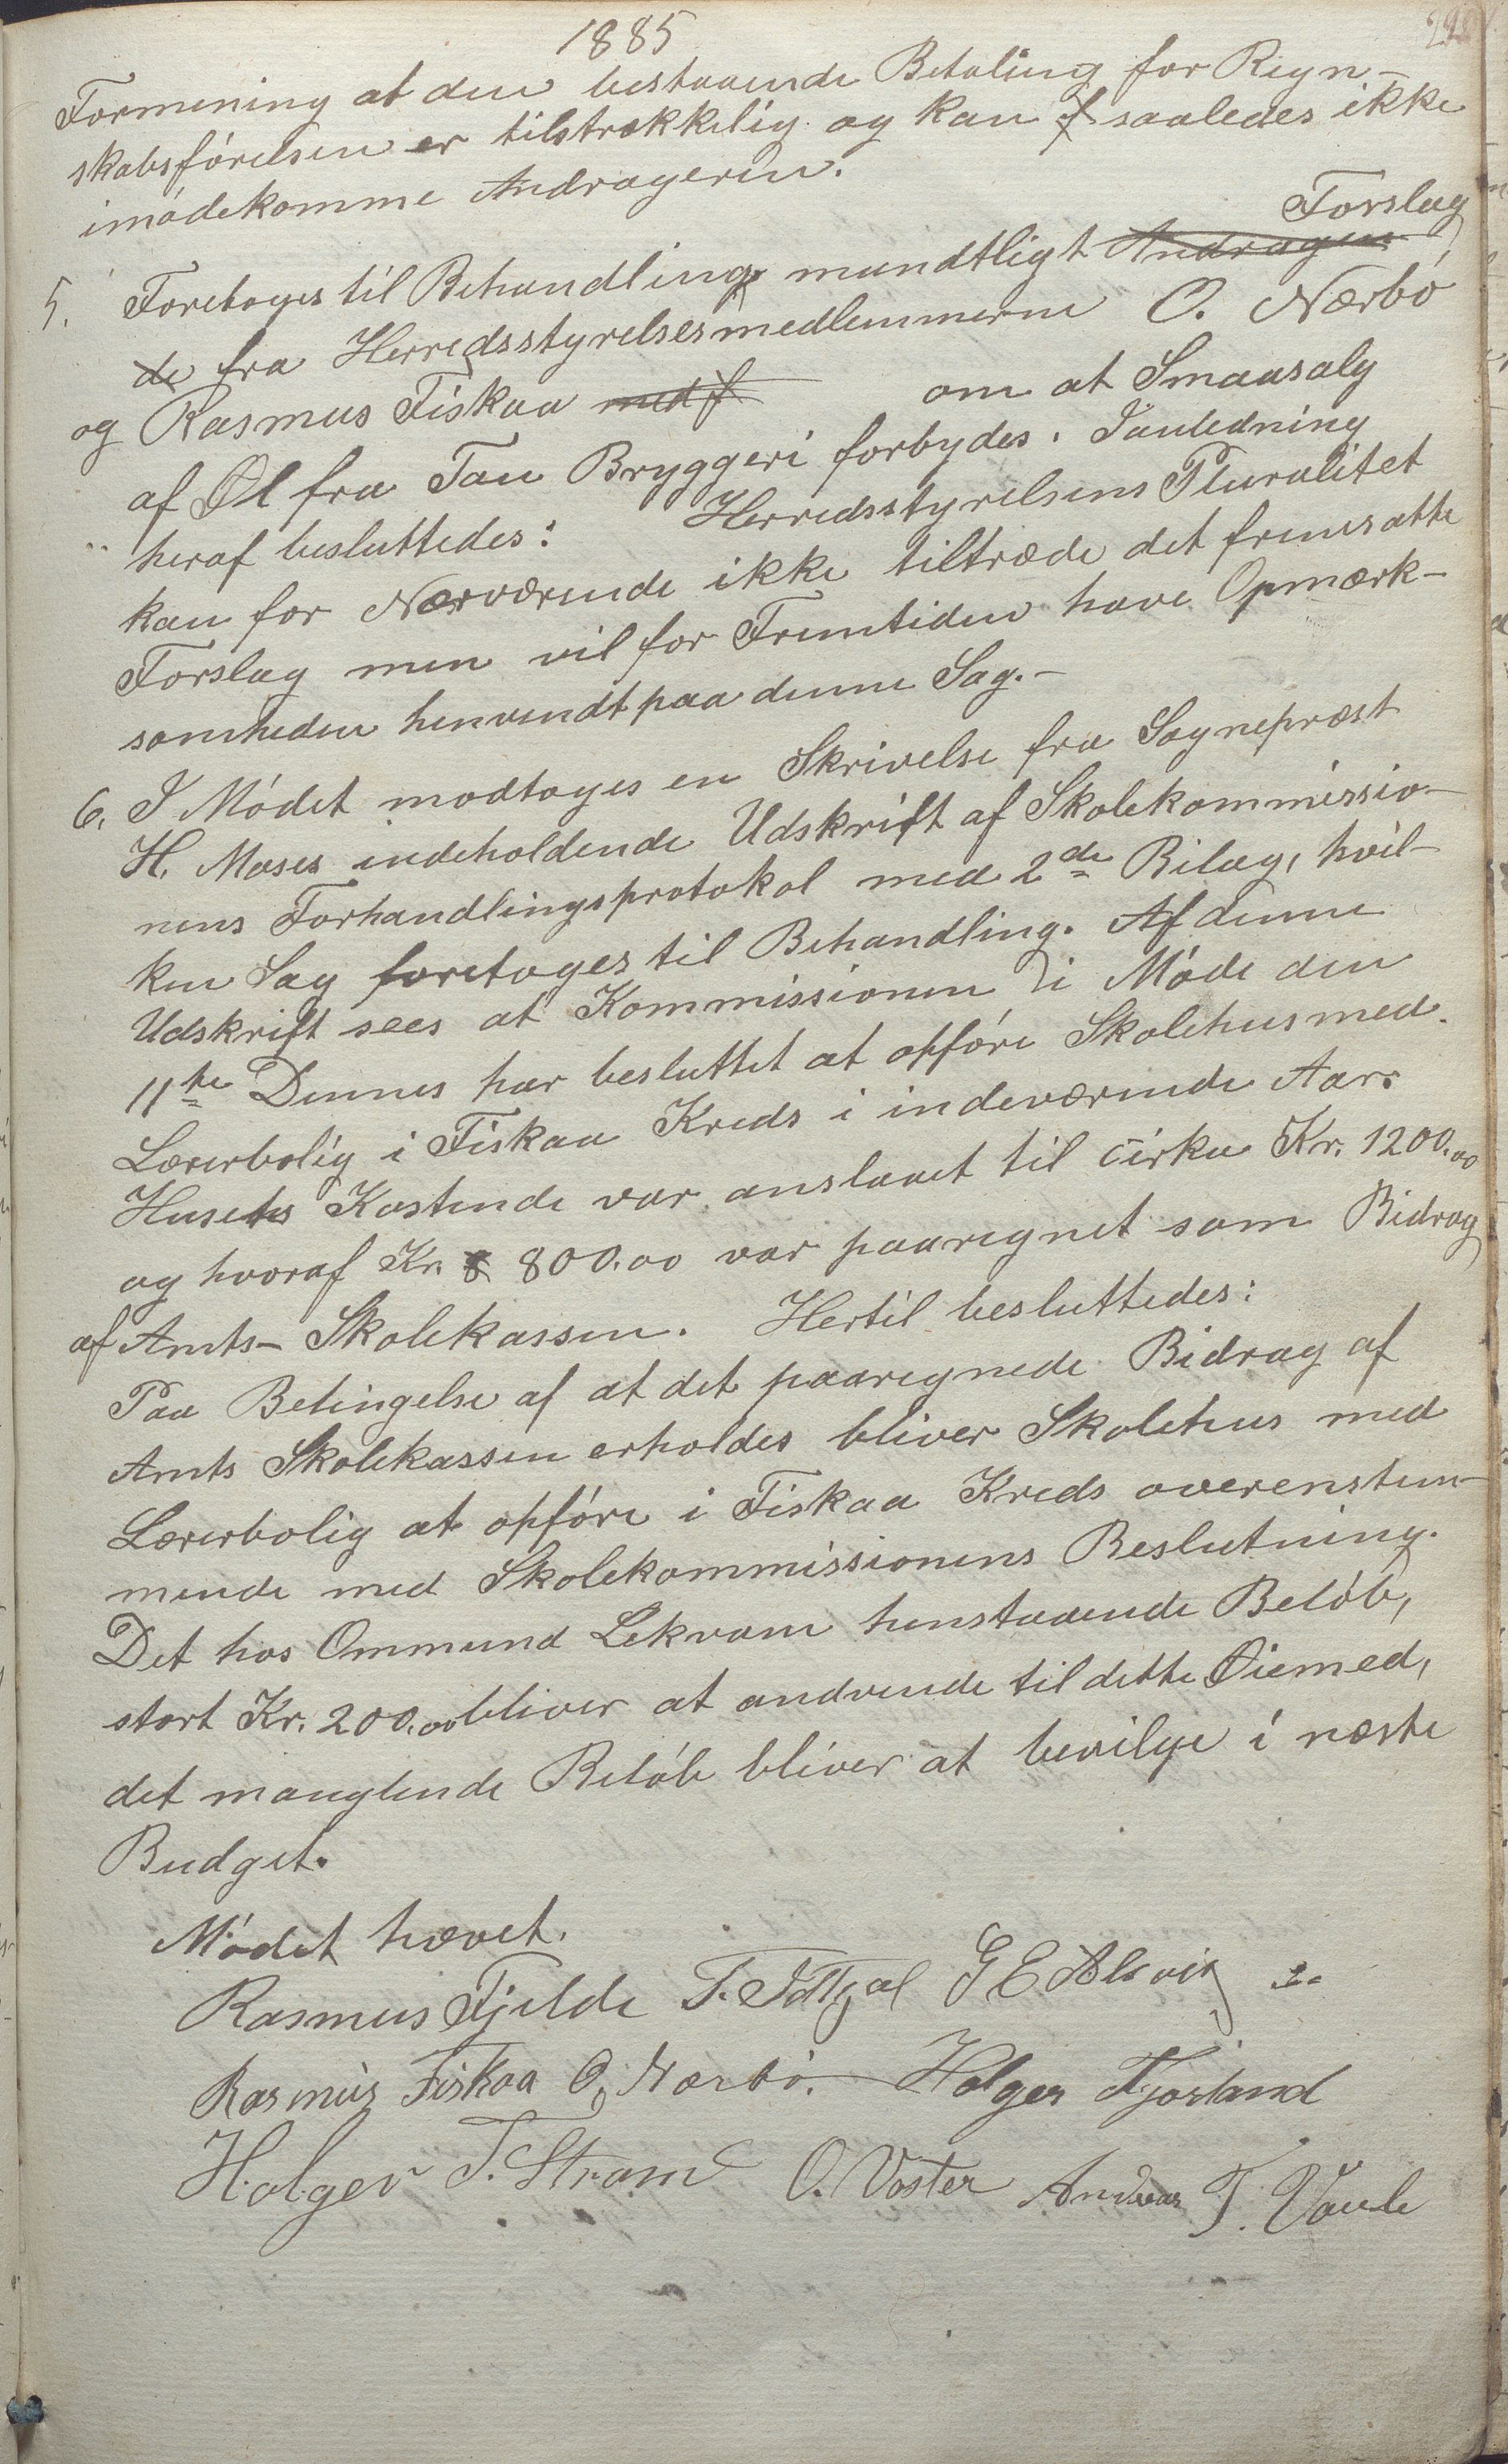 1885
Formening at den bestaaende Betaling for Regn-
skabsførelsen er tilstrækkelig og kan saaledes ikke
imødekomme Andrageren.
Forslag
5. Foretoges til Behandling mundtligt Andragen
de fra Herredsstyrelsesmedlemmerne O. Nærbø
og Rasmus Fiskaa med f om at Smaasalg
af Øl fra Tau Bryggeri forbydes. Ianledning
heraf besluttedes: Herredsstyrelsens Pluralitet
kan for Nærværende ikke tiltræde det fremsatte
Forslag men vil for Fremtiden have Opmærk-
somheden henvendt paa denne Sag.-
6. I Mødet modtoges en Skrivelse fra Sognepræst
H. Moses indeholdende Udskrift af Skolekommissio-
nens Forhandlingsprotokol med 2de Bilag, hvil-
ken Sag foretoges til Behandling. Af denne
Udskrift sees at Kommissionen i Møde den
11te Dennes har besluttet at opføre Skolehus med
Lærerbolig i Fiskaa Kreds i indeværende Aar.
Husets Kostende var anslaaet til cirka Kr. 1200.00
og hvoraf Kr. 800.00 var paaregnet som Bidrag
af Amts-Skolekassen. Hertil besluttedes:
Paa Betingelse af at det paaregnede Bidrag af
Amts Skolekassen erholdes bliver Skolehus med
Lærerbolig at opføre i Fiskaa Kreds overenstem-
mende med Skolekommissionens Beslutning.
Det hos Ommund Lekvam henstaaende Beløb,
stort Kr. 200.00 bliver at andvende til dette Øiemed,
det manglende Beløb bliver at bevilge i næste
Budget.
Mødet hævet.
Rasmus Fjelde T. G E Alsvig
Rasmus Fiskaa O. Nærbø. Holger Tjøstland
Holger T. Strøm O. Voster Andreas T. Vaule